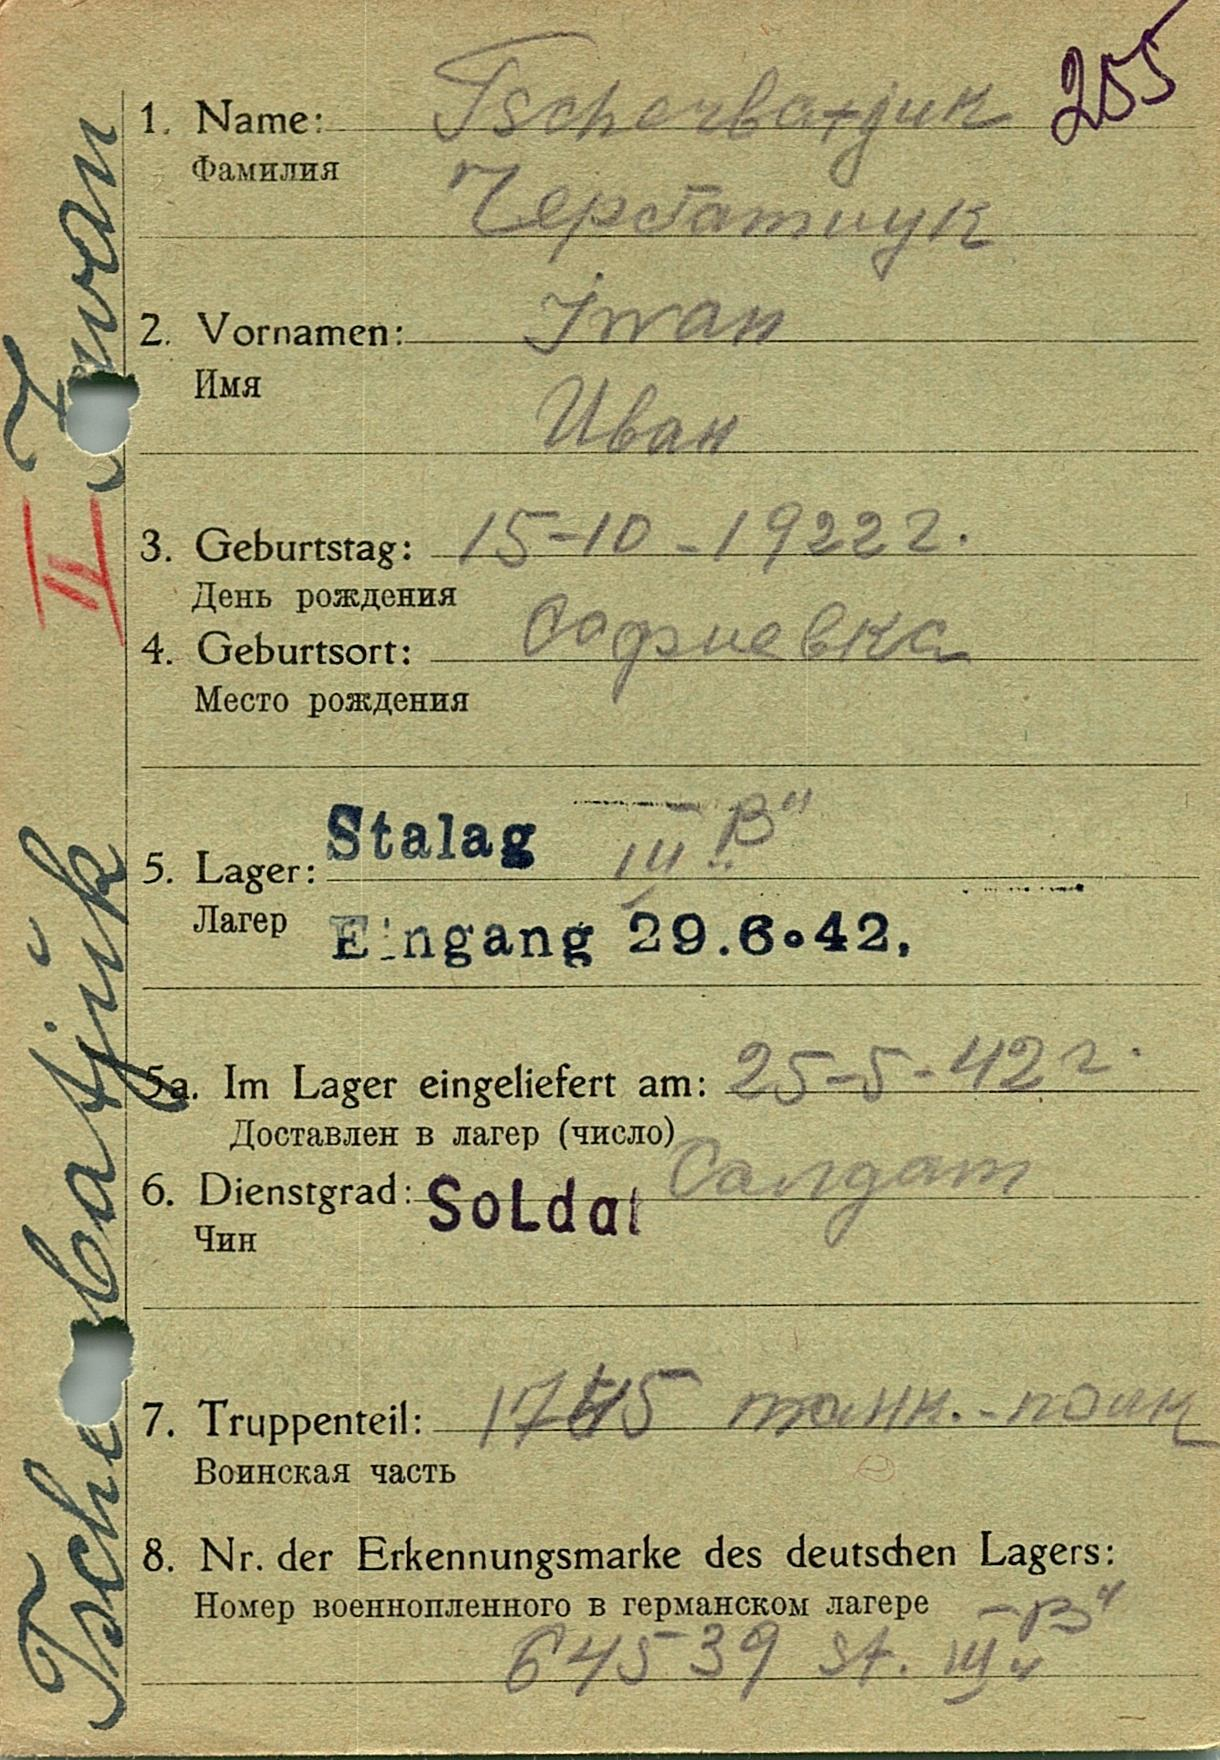 255
1. Name: Tscherbatjuk
Фамилия
Чербатиук
2. Vornamen: Iwan
Имя
Иван
3. Geburtstag: 15-10-1922 г.
День рождения
4. Geburtsort: Софиевка
Место рождения
5. Lager: Stalag III „B"
Лагер
Eingang 29.6.42.
5a. Im Lager eingeliefert am: 25-5-42 г.
Доставлен в лагер (число)
6. Dienstgrad: Soldat Салдат
Чин
7. Truppenteil: танк.-полк
Воинская часть
8. Nr. der Erkennungsmarke des deutschen Lagers:
Номер военнопленного в германском лагере
64539 St. III „B"
Tsche batjuk II Iwan